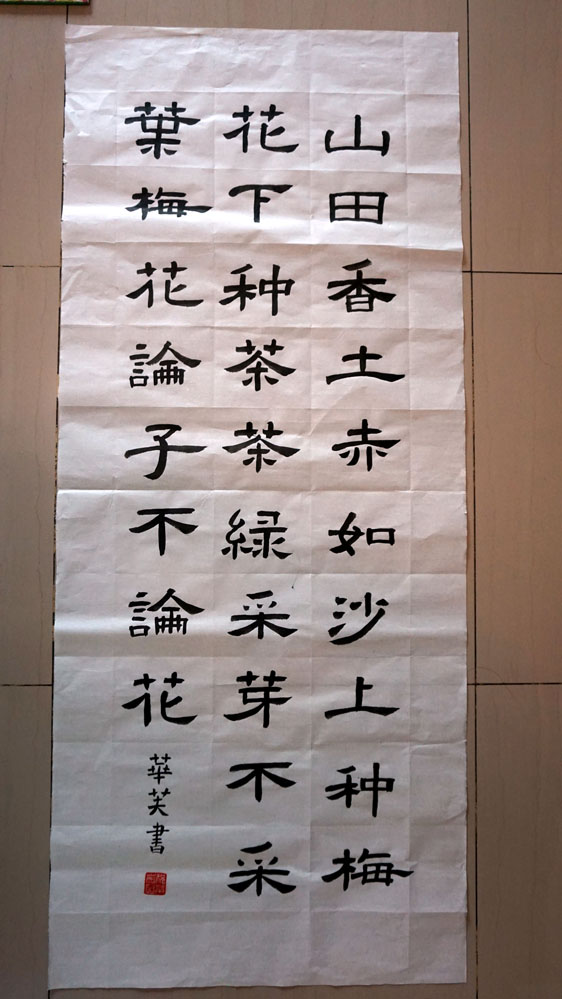 山田香土赤如沙上种梅
花下种茶茶緑采芽不采
葉梅花論子不論花
華芙書